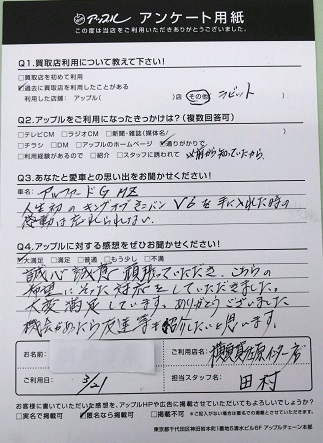 アップル アンケート用紙
この度は当店をご利用いただきありがとうございました。
Q1.買取店利用について教えて下さい!
□買取店を初めて利用
☑過去に買取店を利用したことがある
利用した店舗:アップル( )店 その他( ラビット )
Q2.アップルをご利用になったきっかけは?(複数回答可)
□テレビCM □ラジオCM □新聞・雑誌(媒体名/ )
□チラシ □DM □アップルのホームページ ☑通りがかりで
□利用経験があるので □紹介 □スタッフに誘われて 以前から知っていたから。
Q3.あなたと愛車との思い出をお聞かせください!
車名: アルファードG MZ
人生初のキングオブミニバン V6を手に入れた時の
感動は忘れられない。
Q4.アップルに対する感想をぜひお聞かせください!
☑大満足 □満足 □普通 □もう少し □不満
誠心誠意 頑張っていただき、こちらの
希望にそった対応をしていただきました。
大変満足しています。ありがとうございました
機会があったら友達等も紹介したいと思います。
お名前:
ご利用店名: 横須賀佐原インター店
ご利用日: 3/21
担当スタッフ名: 田村
お客様に書いていただいた感想を、アップルHPや広告に掲載させていただいてもよろしいでしょうか?
□実名で掲載可 ☑匿名なら掲載可 □掲載不可 ※ご記入がない場合は匿名での掲載とさせていただきます。
東京都千代田区神田岩本町1番地5清水ビル6F アップルチェーン本部